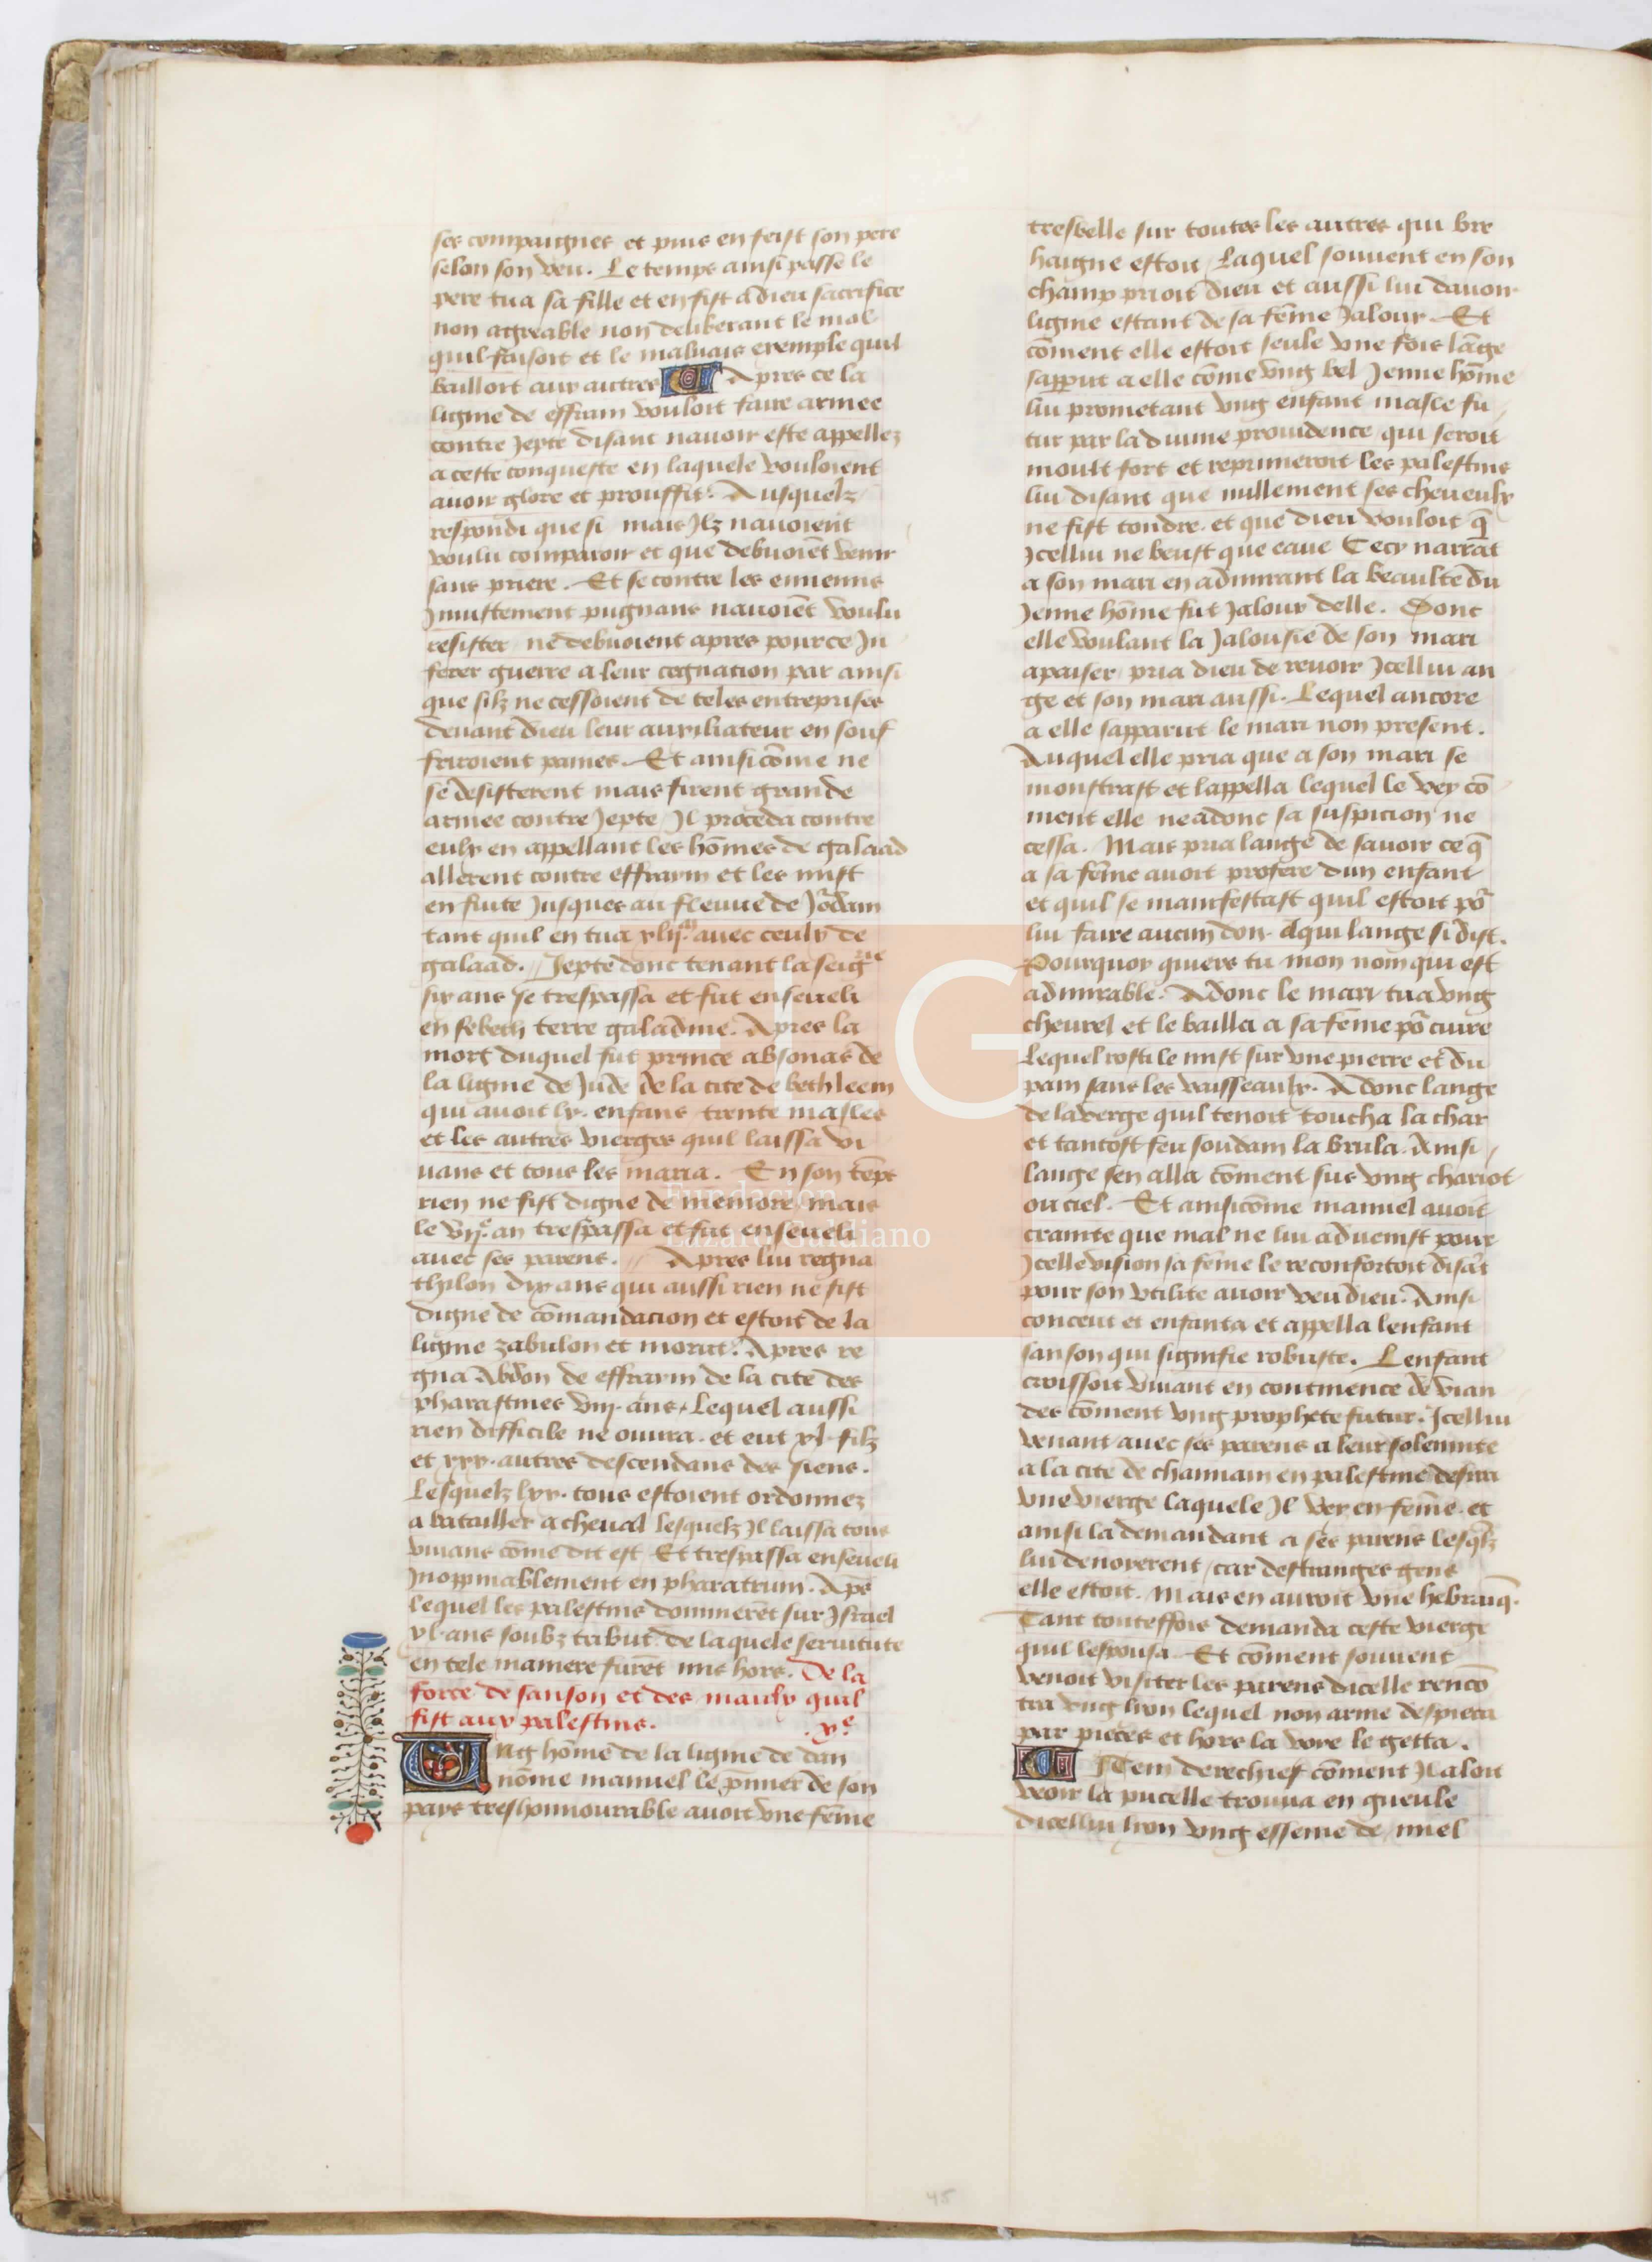 ses compaignes et puis en feist son pere
selon son veu. Le temps ainsi passe le
pere tua sa fille et en fist a dieu sacrifice
non agreable non deliberant le mal
quil faisoit et le maluais exemple quil
bailloit aux autres Apres ce la
ligme de effraim vouloit faire armee
contre Jepte disant nauoir este appellez
a ceste conqueste en laquele vouloient
auoir glore et prouffit. Ausquelz
respondi que si mais Jlz nauoient
voulu comparoir et que debuoiẽt venir
sans priere. Et se contre les ennemis
Jniustement pugnans nauoiẽt voulu
resister ne debuoient apres pource In
ferer guerre a leur cognacion par ainsi
que silz ne cessoient de teles entreprises
deuant dieu leur auxiliateur en souf
friroient paines. Et ainsi cõme ne
se desisterent mais firent grande
armee contre Jepte Jl proceda contre
eulx en appellant les hõmes de galaad
allerent contre effraim et les mist
en fuite Jusques au fleuue de Jordam
tant quil en tua xlij.m auec ceulx de
galaad. Jepte donc tenant la seigrie
six ans se trespassa et fut enseueli
en sebeth terre galadine. Apres la
mort duquel fut prince absonas de
la ligme de Jude de la cite de bethleem
qui auoit lx. enfans trente masles
et les autres vierges quil laissa vi
uans et tous les maria. En son tẽps
rien ne fist digne de memore mais
le vije. an trespassa et fut enseueli
auec ses parens. Apres lui regna
thilon dix ans qui aussi rien ne fist
digne de cõmandacion et estoit de la
ligme zabulon et morut. Apres re
gna Abdon de effraim de la cite des
pharastines viij. ans. Lequel aussi
rien difficile ne ouura. et eut xl. filz
et xxx. autres descendans des siens.
Lesquelz lxx. tous estoient ordonnez
a batailler a cheual lesquelz Jl laissa tous
viuans cõme dit est Et trespassa enseueli
Jnoppinablement en pharatrum. Aps
lequel les palestins dominerẽt sur Jsrael
xl. ans soubz tribut de laquele seruitute
en tele maniere furẽt mis hors. De la
force de sanson et des maulx quil
fist aux palestins. .xe.
Vng hõme de la ligme de dan
nõme manuel le pmier de son
pays treshonnourable auoit vne fẽme
tresbelle sur toutes les autres qui bre
haigne estoit Laquel souuent en son
champ prioit dieu et aussi lui dauoir
ligme estant de sa fẽme Jaloux. Et
cõment elle estoit seule vne fois lãge
sapparut a elle cõme vng bel Jenne hõme
lui prometant vng enfant masle fu
tur par la diuine prouidence qui seroit
moult fort et reprimeroit les palestins
lui disant que nullement ses cheueulx
ne fist tondre. et que dieu vouloit q̃
Jcellui ne beust que eaue Cecy narrãt
a son mari en admirant la beaulte du
Jenne hõme fut Jaloux delle. Donc
elle voulant la Jalousie de son mari
apaiser pria dieu de reuoir Jcellui an
ge et son mari aussi. Lequel ancore
a elle sapparut le mari non present.
Auquel elle pria que a son mari se
monstrast et lappella lequel le vey cõ
ment elle neadonc sa suspicion ne
cessa. Mais pria lange de sauoir ce q̃
a sa fẽme auoit profere dun enfant
et quil se manifestast quil estoit por
lui faire aucun don. Aqui lange si dist.
Pourquoy quiers tu mon nom qui est
admirable. Adonc le mari tua vng
cheurel et le bailla a sa fẽme por cuire
Lequel rosti le mist sur vne pierre et du
pain sans les vaisseaulx. Adonc lange
de la verge quil tenoit toucha la char
et tantost feu soudain la brula. Ainsi
lange sen alla cõment sus vng chariot
ou ciel. Et ainsi cõme manuel auoit
crainte que mal ne lui aduenist pour
Jcelle vision sa fẽme le reconfortoit disãt
pour son vtilite auoir veu dieu. Ainsi
conceut et enfanta et appella lenfant
sanson qui signifie robuste. Lenfant
croissoit viuant en continence de vian
des cõment vng prophete futur. Jcellui
venant auec ses parens a leur solennite
a la cite de channam en palestine desira
vne vierge laquele Jl vey en fẽme. et
ainsi la demandant a ses parens lesqlz
lui denoyerent car destranges gens
elle estoit. Mais en auroit vne hebraiq̃.
Tant touteffois demanda ceste vierge
quil lespousa. Et cõment souuent
venoit visiter les parens dicelle rencõ
tra vng lyon lequel non arme despieca
par pieces et hors la voye le getta.
Jtem derechief cõment Jl aloit
veoir la pucelle trouua en gueule
dicellui lyon vng esseme de miel
45
LG
Fundación
Lázaro Galdiano